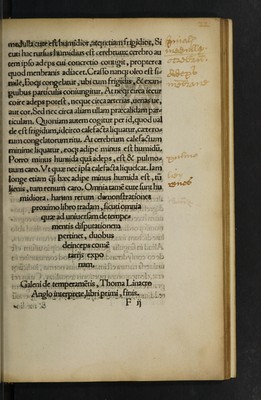 medulla cute est humidior, atque etiam frigidior, Si
cuti hac rursus humidius est cerebrum: cerebro au
tem ipso adeps cui concretio contigit, propterea
quod membranis adiacet. Crasso nanque oleo est si=
milis, Eoque congelatur, ubi cum frigida, & exan=
guibus particulis coniungitur, At neque circa iecur
coire adeps potest, neque circa arterias, uenasue,
aut cor, Sed nec circa alium ullam præcalidam par=
ticulam. Quoniam autem cogitur per id, quod ual
de est frigidum, idcirco calefacta liquatur, cætero=
rum congelatorum ritu. At cerebrum calefactum
minime liquatur, eoque adipe minus est humidũ,
Porro minus humida quã adeps, est & pulmo=
num caro. Vt quæ nec ipsa calefacta liquescat. Iam
longe etiam hæc adipe minus humida est,
lienis, tum renum caro. Omnia tamẽ cute sunt hu
midiora. harum rerum demonstrationes
proximo libro tradam, sicuti omnia
quæ ad uniuersam de tempera=
mentis disputationem
pertinet, duobus
deinceps comẽ
tarijs expo
nam.
Galeni de temperamẽtis, Thoma Linacro
Anglo interprete, libri primi, finis.
F ij